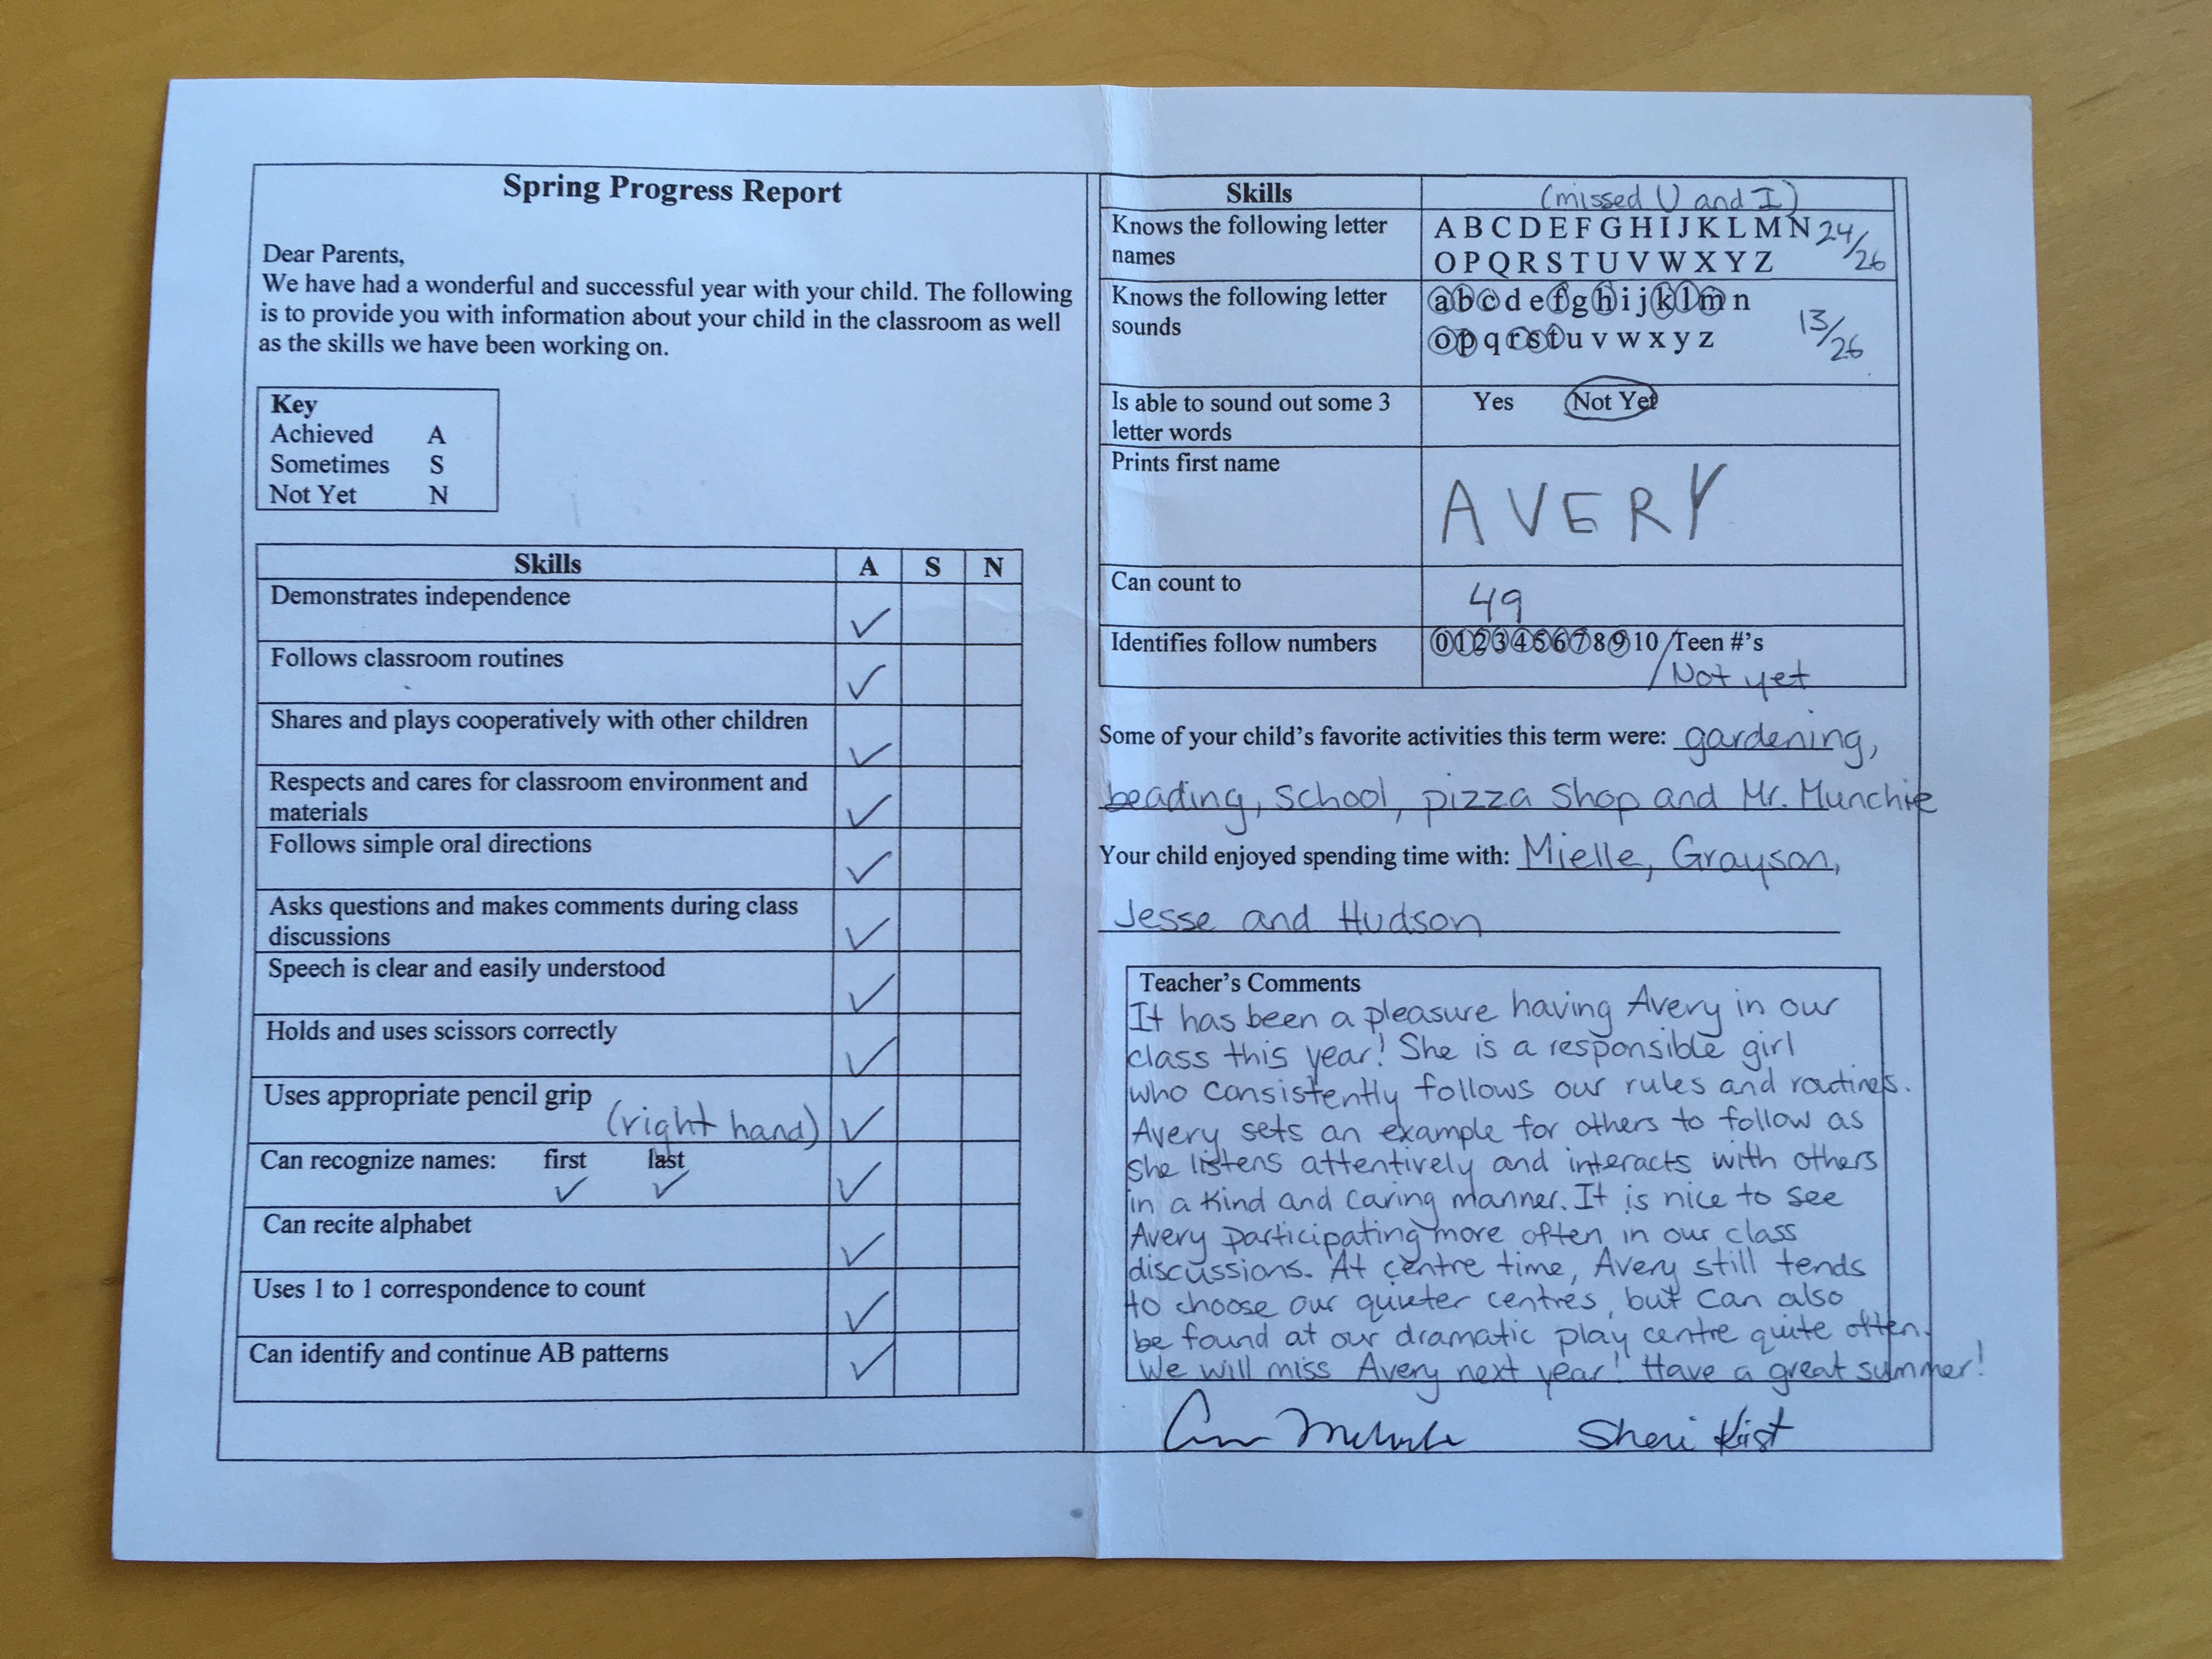 Spring Progress Report
Dear Parents,
We have had a wonderful and successful year with your child. The following
is to provide you with information about your child in the classroom as well
as the skills we have been working on.
Key
Achieved A
Sometimes S
Not Yet N
Skills A S N
Demonstrates independence ✓
Follows classroom routines ✓
Shares and plays cooperatively with other children ✓
Respects and cares for classroom environment and
materials ✓
Follows simple oral directions ✓
Asks questions and makes comments during class
discussions ✓
Speech is clear and easily understood ✓
Holds and uses scissors correctly ✓
Uses appropriate pencil grip (right hand) ✓
Can recognize names: first last
✓ ✓ ✓
Can recite alphabet ✓
Uses 1 to 1 correspondence to count ✓
Can identify and continue AB patterns ✓
Skills (missed U and I)
Knows the following letter A B C D E F G H I J K L M N 24/26
names O P Q R S T U V W X Y Z
Knows the following letter a b c d e f g h i j k l m n
sounds o p q r s t u v w x y z 13/26
Is able to sound out some 3 Yes Not Yet
letter words
Prints first name AVERY
Can count to 49
Identifies follow numbers 0 1 2 3 4 5 6 7 8 9 10 / Teen #'s
Not yet
Some of your child's favorite activities this term were: gardening,
beading, school, pizza shop and Mr. Munchie
Your child enjoyed spending time with: Mielle, Grayson,
Jesse and Hudson
Teacher's Comments
It has been a pleasure having Avery in our
class this year! She is a responsible girl
who consistently follows our rules and routines.
Avery sets an example for others to follow as
she listens attentively and interacts with others
in a kind and caring manner. It is nice to see
Avery participating more often in our class
discussions. At centre time, Avery still tends
to choose our quieter centres, but can also
be found at our dramatic play centre quite often.
We will miss Avery next year! Have a great summer!
Sheri Kist